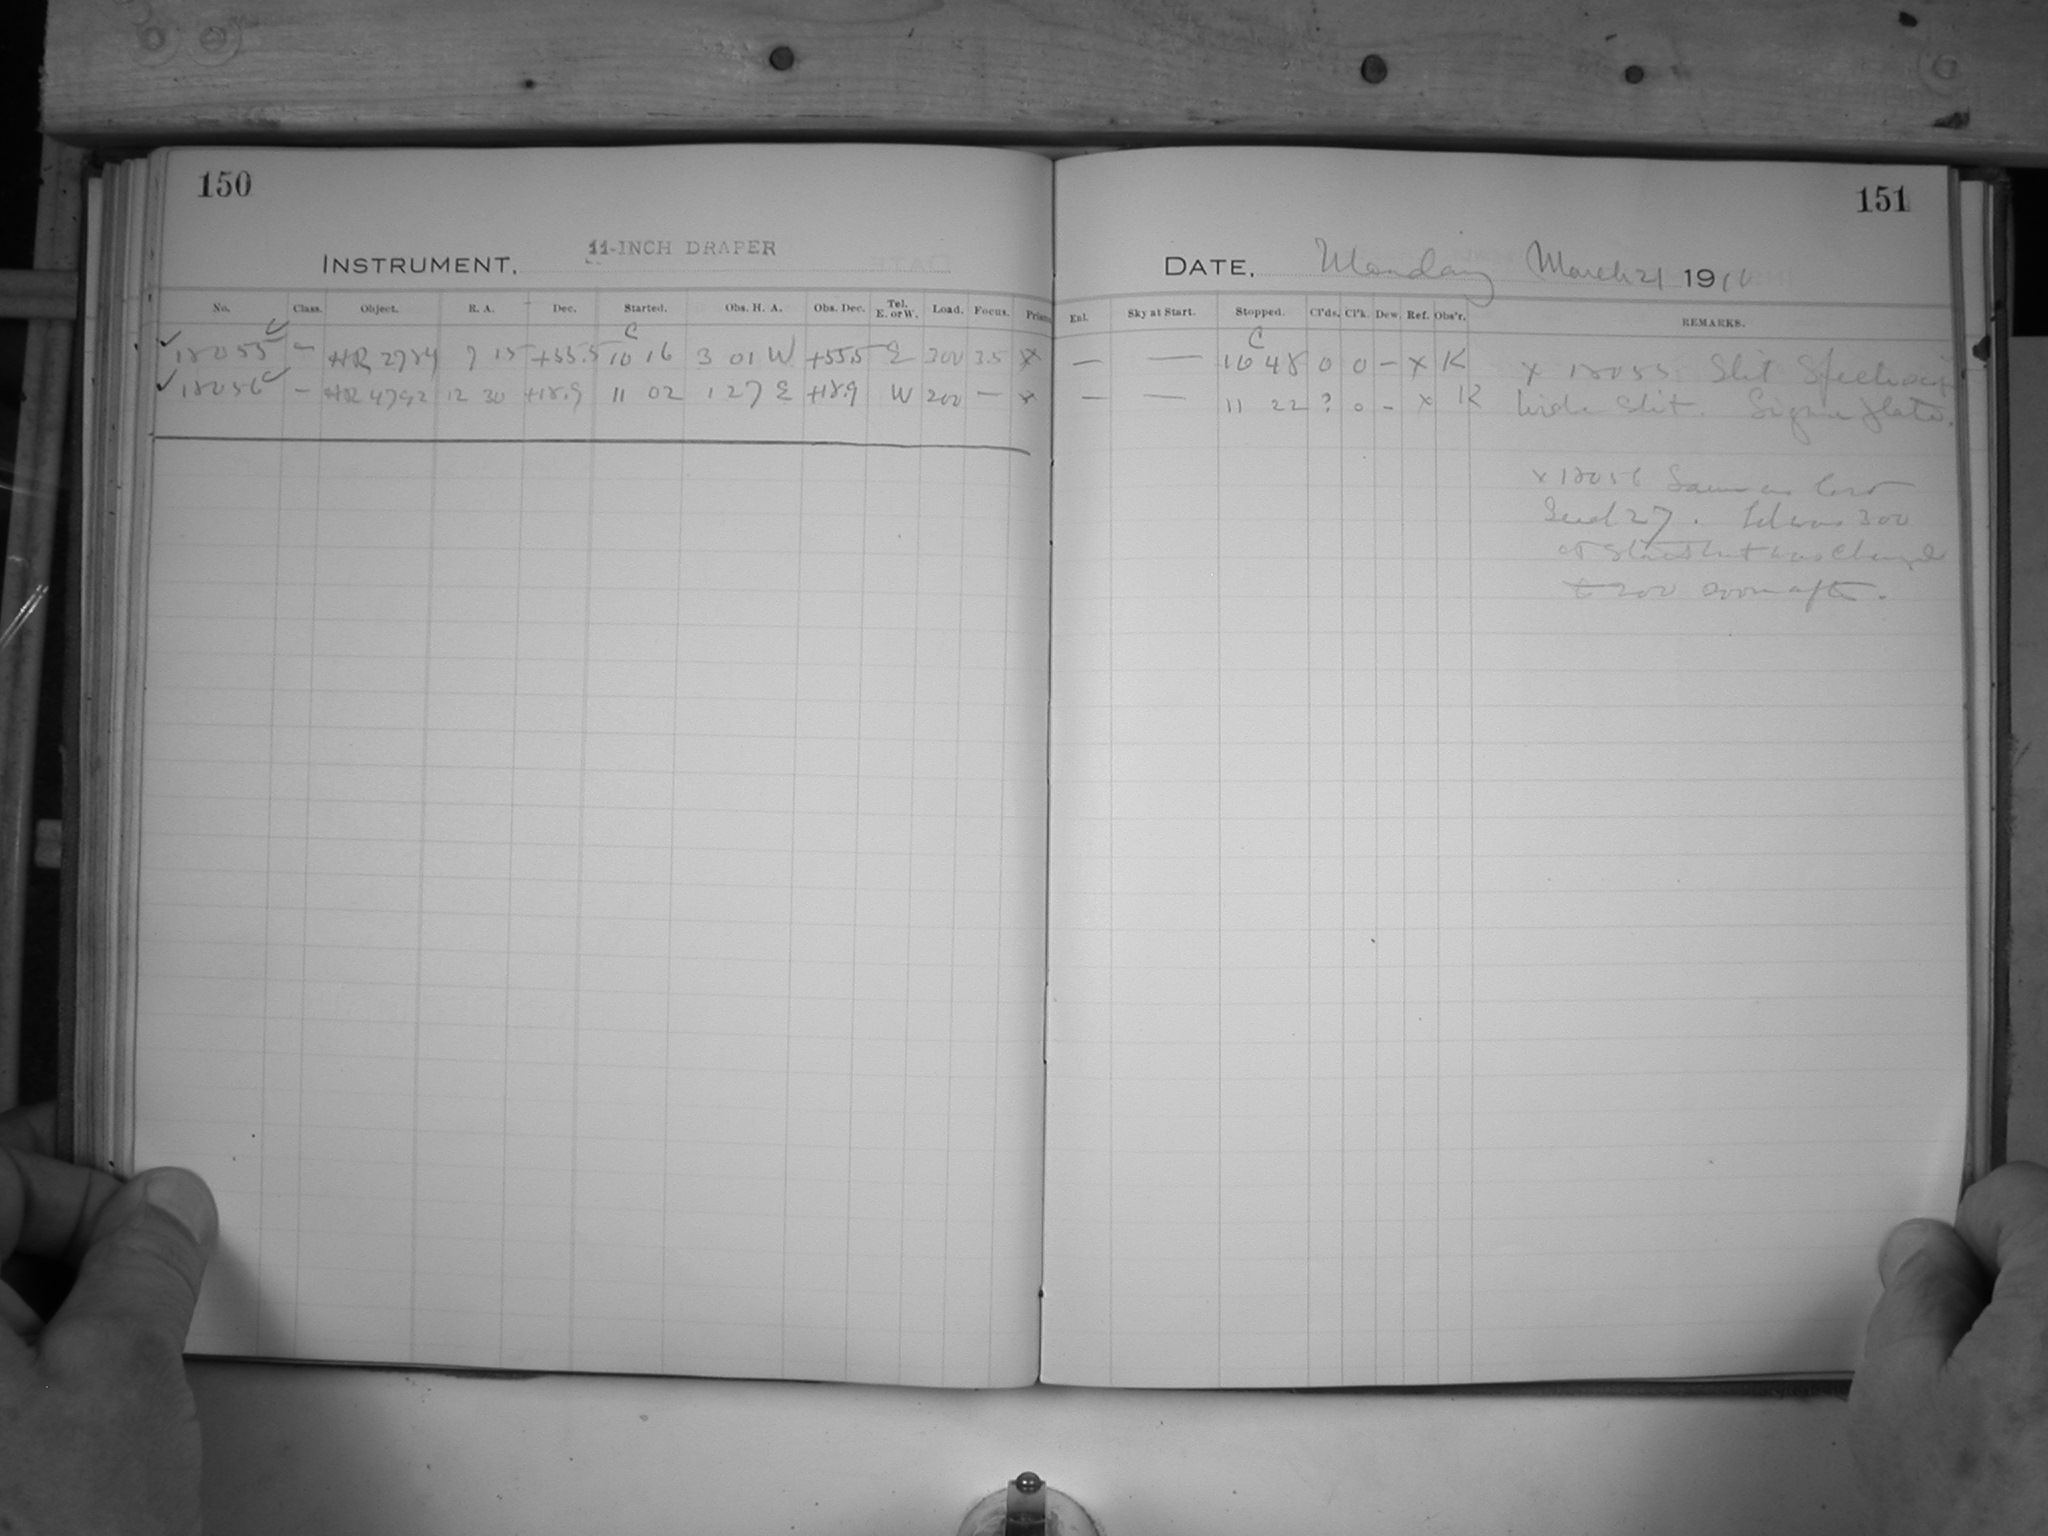 150
INSTRUMENT, 11-INCH DRAPER
No. Class. Object. R. A. Dec. Started. Obs. H. A. Obs. Dec. Tel. E. or W. Load. Focus. Prisms
C
✓ 18055 ✓ — HR 2784 7 15 +55.5 10 16 3 01 W +55.5 E 300 3.5 x
✓ 18056 ✓ — HR 4792 12 30 +18.9 11 02 1 27 E +18.9 W 200 — x
151
DATE, Monday March 21 1910
Enl. Sky at Start. Stopped. Cl'ds. Cl'k. Dew. Ref. Obs'r. REMARKS.
C
— — 10 48 0 0 — x K x 18055 Slit
— — 11 22 ? 0 - x K Wide Slit. Sigma plate.
x 18056 Same as last
27. was 300
at start but was changed
to 200 soon after.